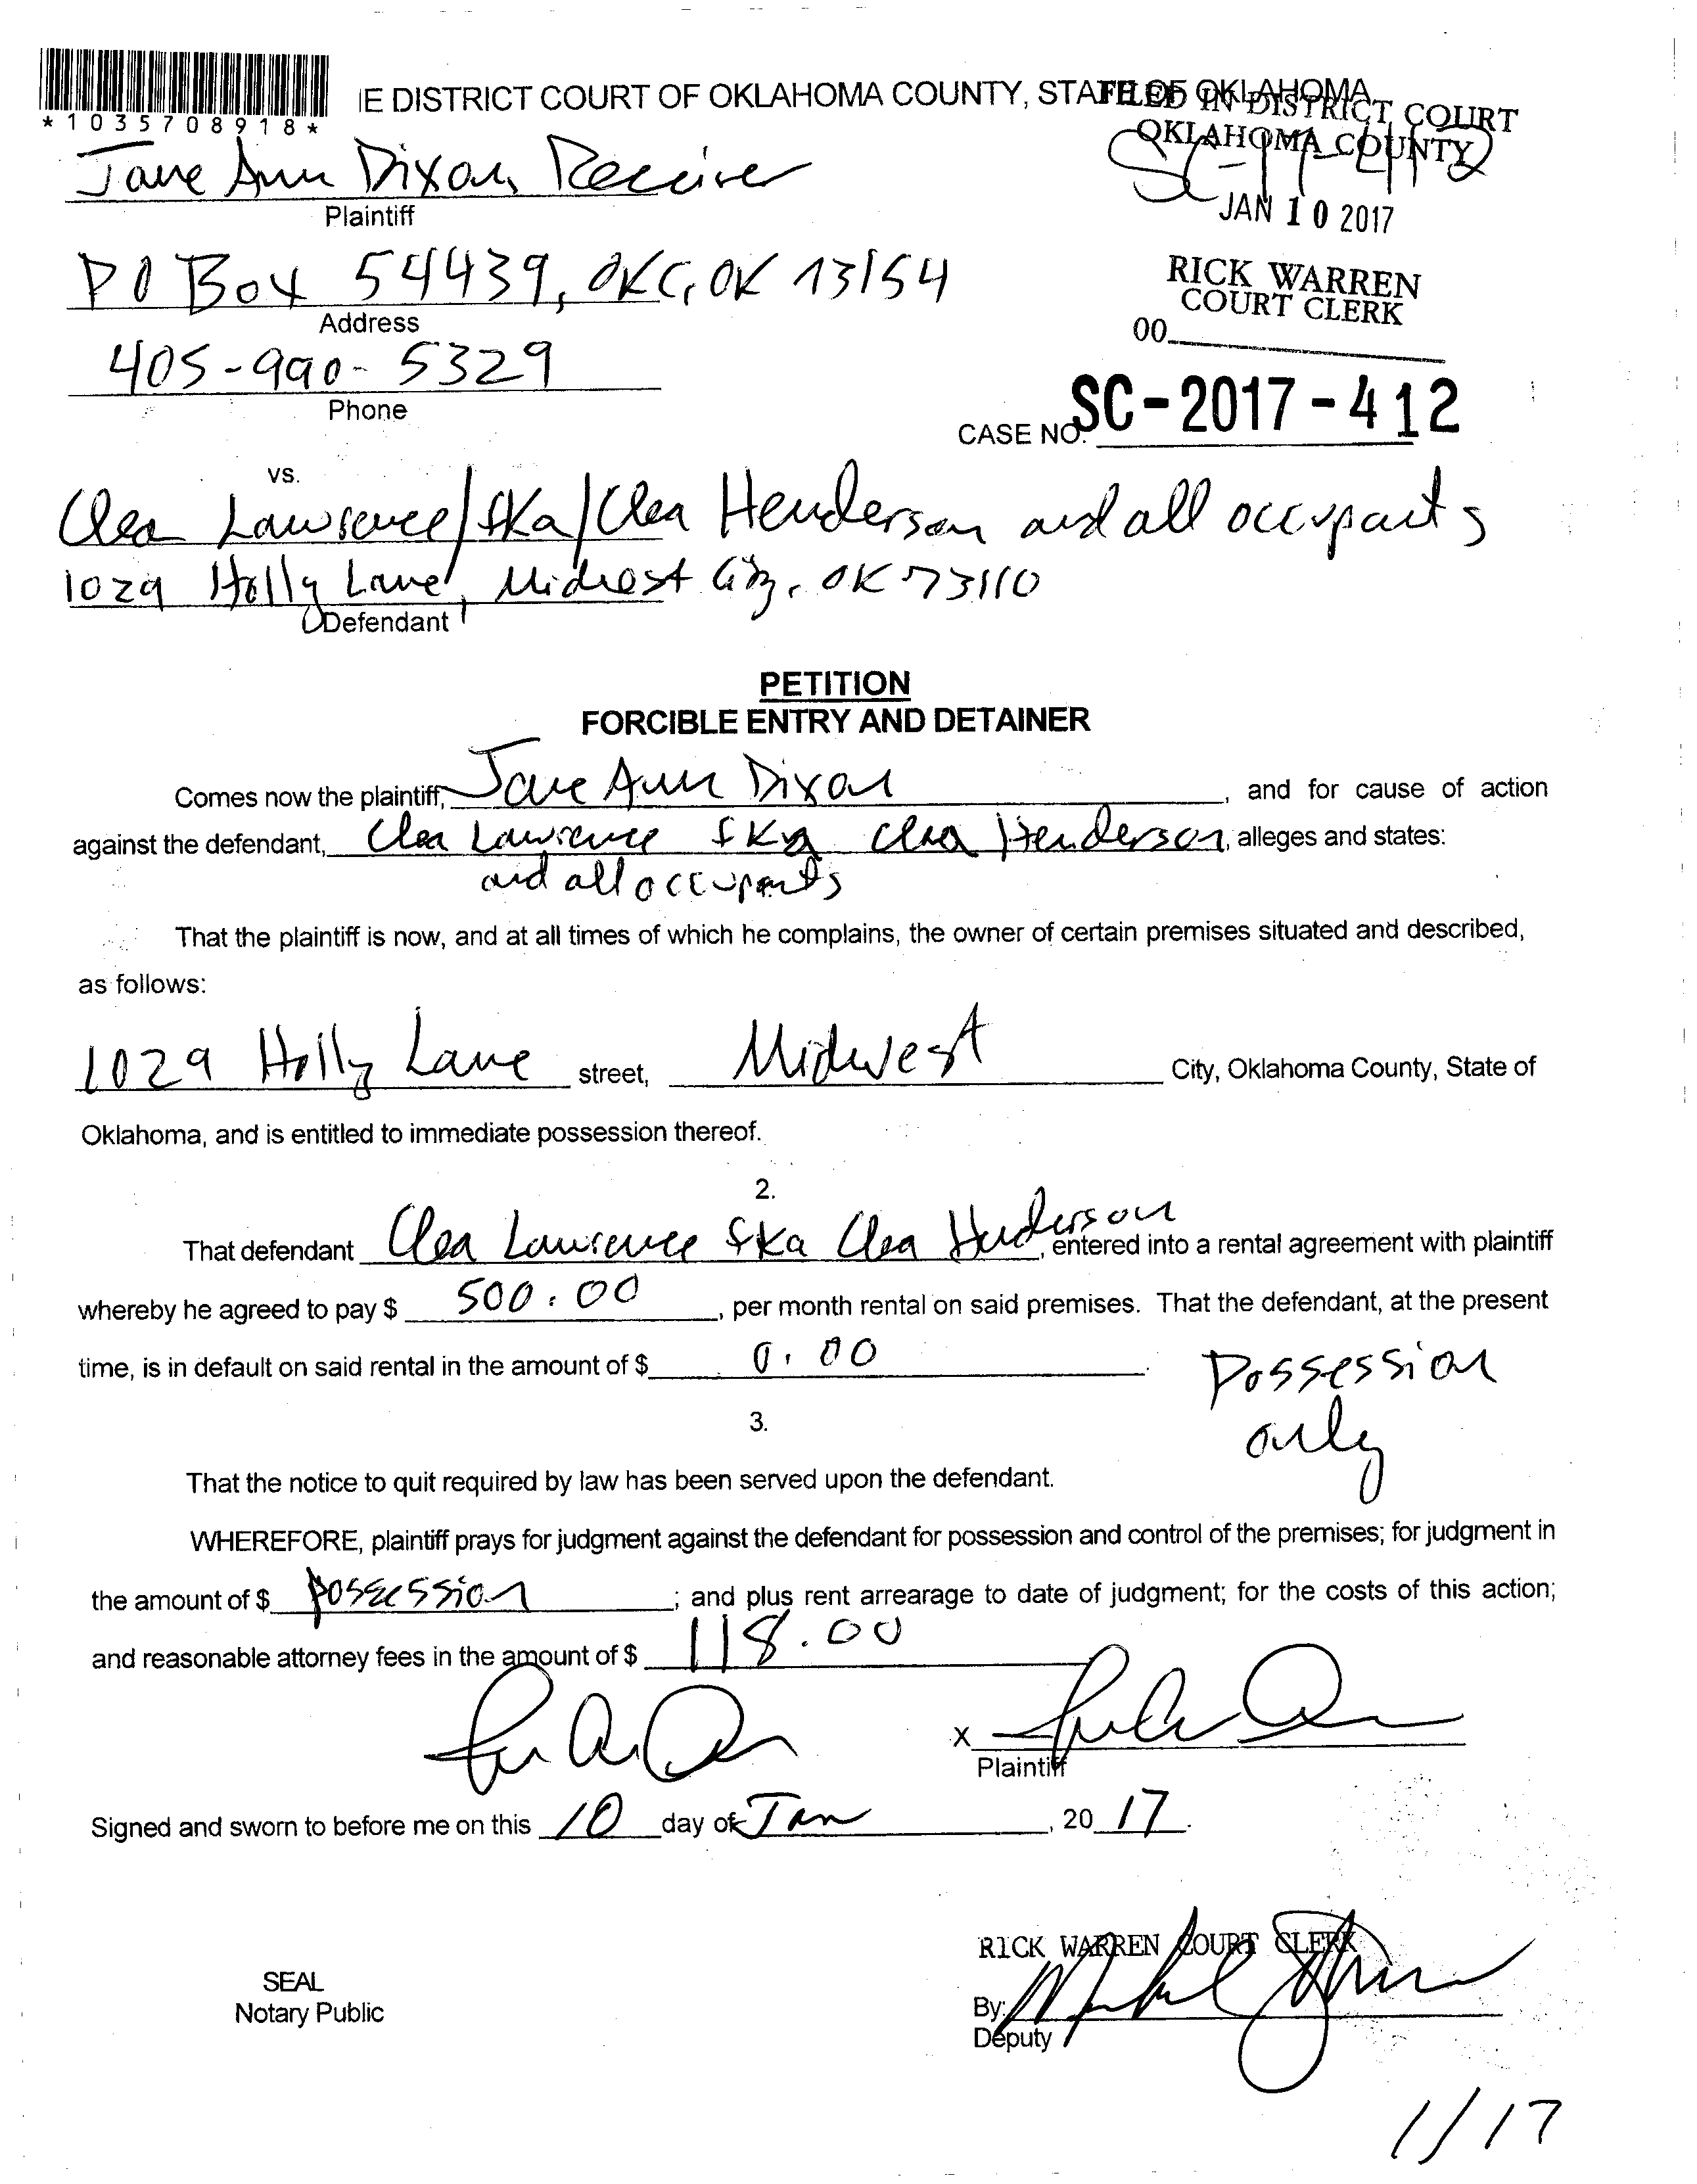 *1035708918*
IE DISTRICT COURT OF OKLAHOMA COUNTY, STATE OF OKLAHOMA
FILED IN DISTRICT COURT
OKLAHOMA COUNTY
SC-17-412
JAN 10 2017
RICK WARREN
COURT CLERK
00
Jane Ann Dixon, Receiver
Plaintiff
PO Box 54439, OKC, OK 73154
Address
405-990-5329
Phone
CASE NO. SC-2017-412
vs.
Clea Lawrence/fka/Clea Henderson and all occupants
1029 Holly Lane, Midwest City, OK 73110
Defendant
PETITION
FORCIBLE ENTRY AND DETAINER
Comes now the plaintiff, Jane Ann Dixon, and for cause of action
against the defendant, Clea Lawrence fka Clea Henderson, alleges and states:
and all occupants
That the plaintiff is now, and at all times of which he complains, the owner of certain premises situated and described,
as follows:
1029 Holly Lane street, Midwest City, Oklahoma County, State of
Oklahoma, and is entitled to immediate possession thereof.
2.
That defendant Clea Lawrence fka Clea Henderson, entered into a rental agreement with plaintiff
whereby he agreed to pay $ 500.00, per month rental on said premises. That the defendant, at the present
time, is in default on said rental in the amount of $ 0.00.
Possession
only
3.
That the notice to quit required by law has been served upon the defendant.
WHEREFORE, plaintiff prays for judgment against the defendant for possession and control of the premises; for judgment in
the amount of $ possession; and plus rent arrearage to date of judgment; for the costs of this action;
and reasonable attorney fees in the amount of $ 118.00
X
Plaintiff
Signed and sworn to before me on this 10 day of Jan, 20 17.
RICK WARREN COURT CLERK
SEAL
Notary Public
By:
Deputy
1/17